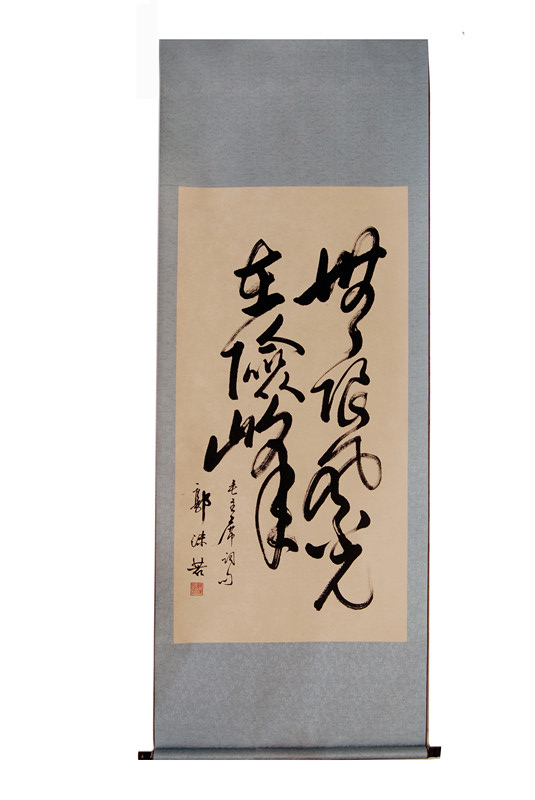 無限風光
在險峰
毛主席词句
郭沫若